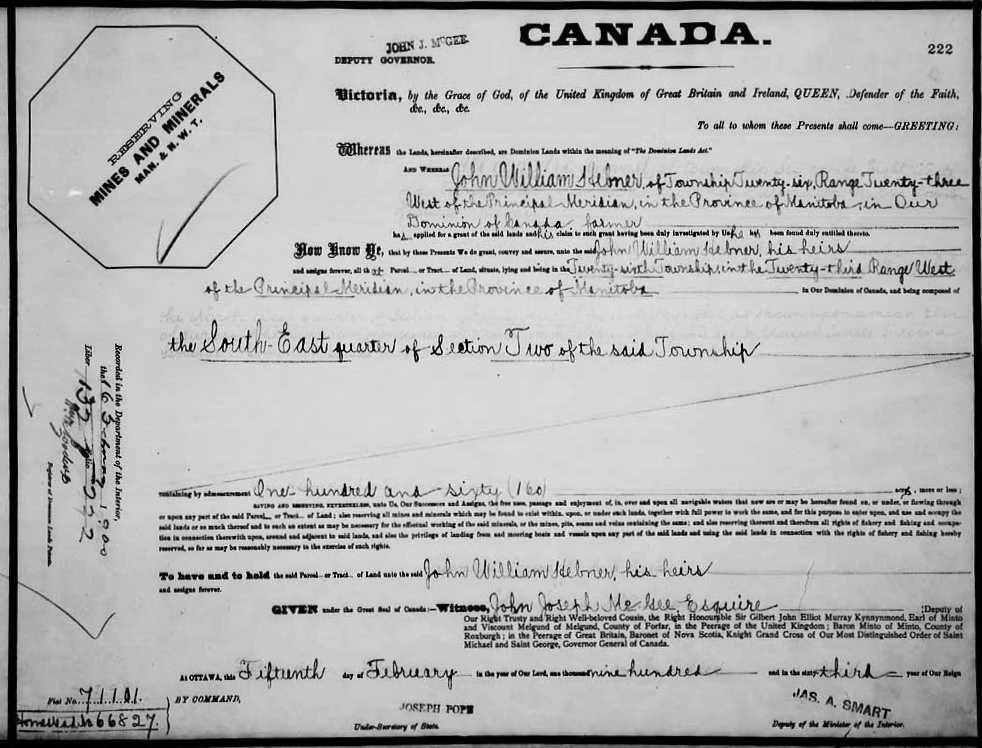 JOHN J. McGEE.
DEPUTY GOVERNOR.
CANADA.
222
RESERVING
MINES AND MINERALS
MAN. & N. W. T.
Victoria, by the Grace of God, of the United Kingdom of Great Britain and Ireland, QUEEN, Defender of the Faith,
&c., &c., &c.
To all to whom these Presents shall come—GREETING:
Whereas the Lands, hereinafter described, are Dominion Lands within the meaning of "The Dominion Lands Act."
AND WHEREAS John William Hebner, of Township Twenty-six, Range Twenty-three
West of the Principal Meridian, in the Province of Manitoba, in Our
Dominion of Canada, farmer
has applied for a grant of the said lands and his claim to such grant having been duly investigated by Us he has been found duly entitled thereto.
Now Know Ye, that by these Presents We do grant, convey and assure, unto the said John William Hebner, his heirs
and assigns forever, all that Parcel or Tract of Land, situate, lying and being in the Twenty-sixth Township, in the Twenty-third Range West
of the Principal Meridian, in the Province of Manitoba in Our Dominion of Canada, and being composed of
the South-East quarter of Section Two of the said Township
Recorded in the Department of the Interior,
the
1900
Liber 135 Folio 222
Registrar of Dominion Lands Patents.
containing by admeasurement One hundred and sixty (160) acres, more or less;
SAVING AND RESERVING, NEVERTHELESS, unto Us, Our Successors and Assigns, the free uses, passage and enjoyment of, in, over and upon all navigable waters that now are or may be hereafter found on, or under, or flowing through
or upon any part of the said Parcel or Tract of Land; also reserving all mines and minerals which may be found to exist within, upon, or under such lands, together with full power to work the same, and for this purpose to enter upon, and use and occupy the
said lands or so much thereof and to such an extent as may be necessary for the effectual working of the said minerals, or the mines, pits, seams and veins containing the same; and also reserving thereout and therefrom all rights of fishery and fishing and occupa-
tion in connection therewith upon, around and adjacent to said lands, and also the privilege of landing from and mooring boats and vessels upon any part of the said lands and using the said lands in connection with the rights of fishery and fishing hereby
reserved, so far as may be reasonably necessary to the exercise of such rights.
To have and to hold the said Parcel or Tract of Land unto the said John William Hebner, his heirs
and assigns forever.
GIVEN under the Great Seal of Canada:—Witness, John Joseph McGee Esquire ;Deputy of
Our Right Trusty and Right Well-beloved Cousin, the Right Honourable Sir Gilbert John Elliot Murray Kynnynmond, Earl of Minto
and Viscount Melgund of Melgund, County of Forfar, in the Peerage of the United Kingdom; Baron Minto of Minto, County of
Roxburgh; in the Peerage of Great Britain, Baronet of Nova Scotia, Knight Grand Cross of Our Most Distinguished Order of Saint
Michael and Saint George, Governor General of Canada.
AT OTTAWA, this Fifteenth day of February in the year of Our Lord, one thousand nine hundred and in the sixty-third year of Our Reign
Fiat No. 71101.
BY COMMAND,
Homestead No 66827.
JOSEPH POPE
Under-Secretary of State.
JAS. A. SMART
Deputy of the Minister of the Interior.